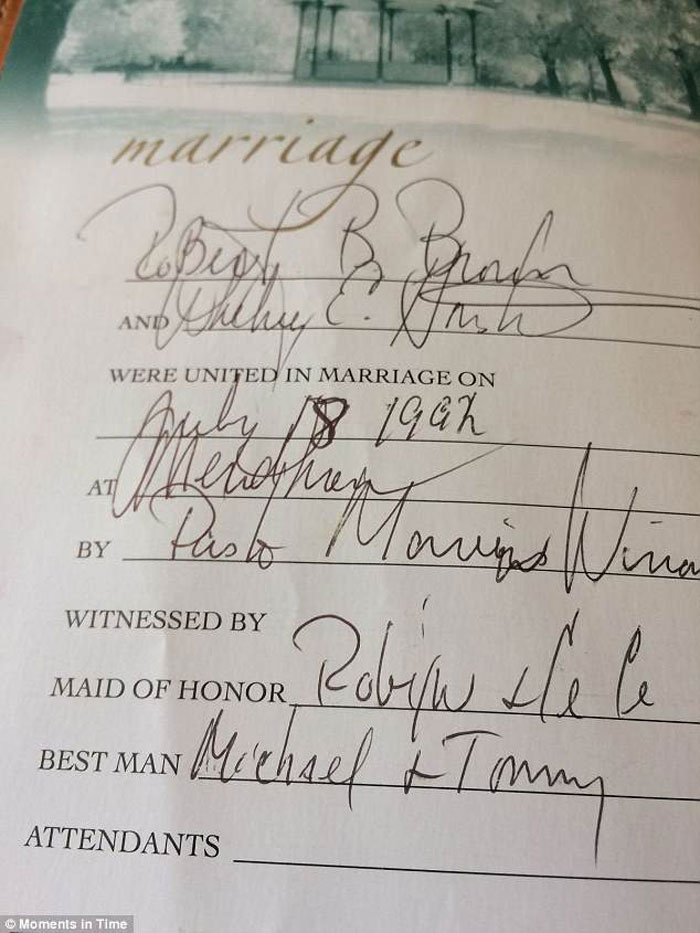 marriage
Robert B. Brown
AND Whitney E. Houston
WERE UNITED IN MARRIAGE ON
July 18 1992
AT Mendham
BY Pastor Marvin Wina
WITNESSED BY
MAID OF HONOR Robyn + Ce Ce
BEST MAN Michael + Tommy
ATTENDANTS
© Moments in Time